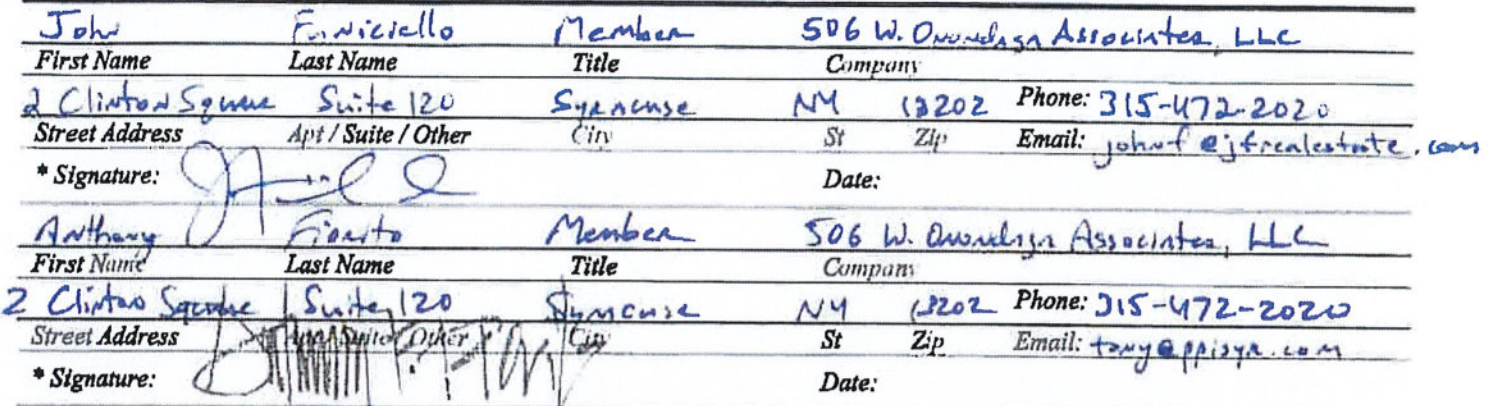 John Funiciello Member 506 W. Onondaga Associates, LLC
First Name Last Name Title Company
2 Clinton Square Suite 120 Syracuse NY 13202 Phone: 315-472-2020
Street Address Apt / Suite / Other City St Zip Email: johnf@jfrealestate.com
* Signature: Date:
Anthony Fiorito Member 506 W. Onondaga Associates, LLC
First Name Last Name Title Company
2 Clinton Square Suite 120 Syracuse NY 13202 Phone: 315-472-2020
Street Address Apt / Suite / Other City St Zip Email: tony@ppisyr.com
* Signature: Date: